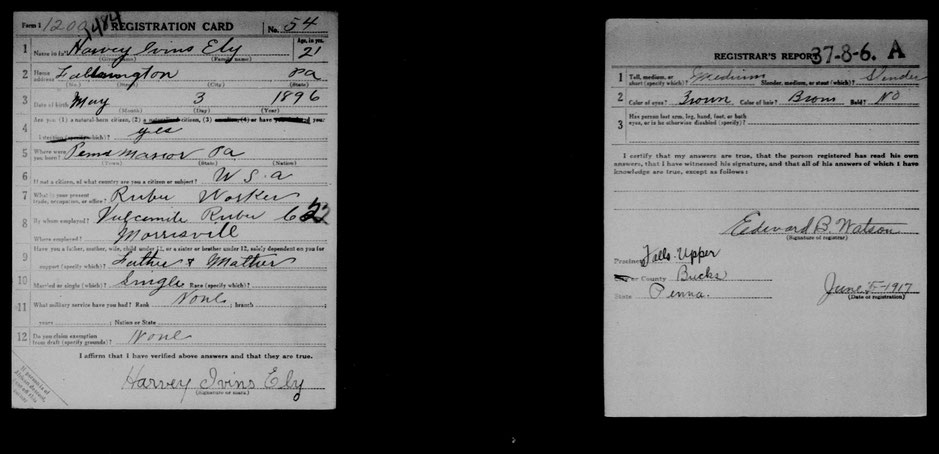 Form 1 1200 1484 REGISTRATION CARD No. 54
1 Name in full Harvey Ivins Ely Age, in yrs. 21
(Given name) (Family name)
2 Home address Fallsington Pa
(No.) (Street) (City) (State)
3 Date of birth May 3 1896
(Month) (Day) (Year)
4 Are you (1) a natural-born citizen, (2) a naturalized citizen, (3) an alien, (4) or have you declared your
intention (specify which)? yes
5 Where were you born? Penns Manor Pa
(Town) (State) (Nation)
6 If not a citizen, of what country are you a citizen or subject? U S a
7 What is your present trade, occupation, or office? Ruber Worker
8 By whom employed? Vulcanite Ruber Co 22
Where employed? Morrisvill
9 Have you a father, mother, wife, child under 12, or a sister or brother under 12, solely dependent on you for
support (specify which)? Father & Mather
10 Married or single (which)? Single Race (specify which)?
11 What military service have you had? Rank None ; branch
years ; Nation or State
12 Do you claim exemption from draft (specify grounds)? None
I affirm that I have verified above answers and that they are true.
Harvey Ivins Ely
(Signature or mark)
If person is of African descent, tear off this corner
REGISTRAR'S REPORT 37-8-6. A
1 Tall, medium, or short (specify which)? Medium Slender, medium, or stout (which)? Slender
2 Color of eyes? Brown Color of hair? Brown Bald? No
3 Has person lost arm, leg, hand, foot, or both
eyes, or is he otherwise disabled (specify)?
I certify that my answers are true, that the person registered has read his own
answers, that I have witnessed his signature, and that all of his answers of which I have
knowledge are true, except as follows:
Edward B. Watson
(Signature of registrar)
Precinct Falls-Upper
City or County Bucks
State Penna.
June 5-1917
(Date of registration)